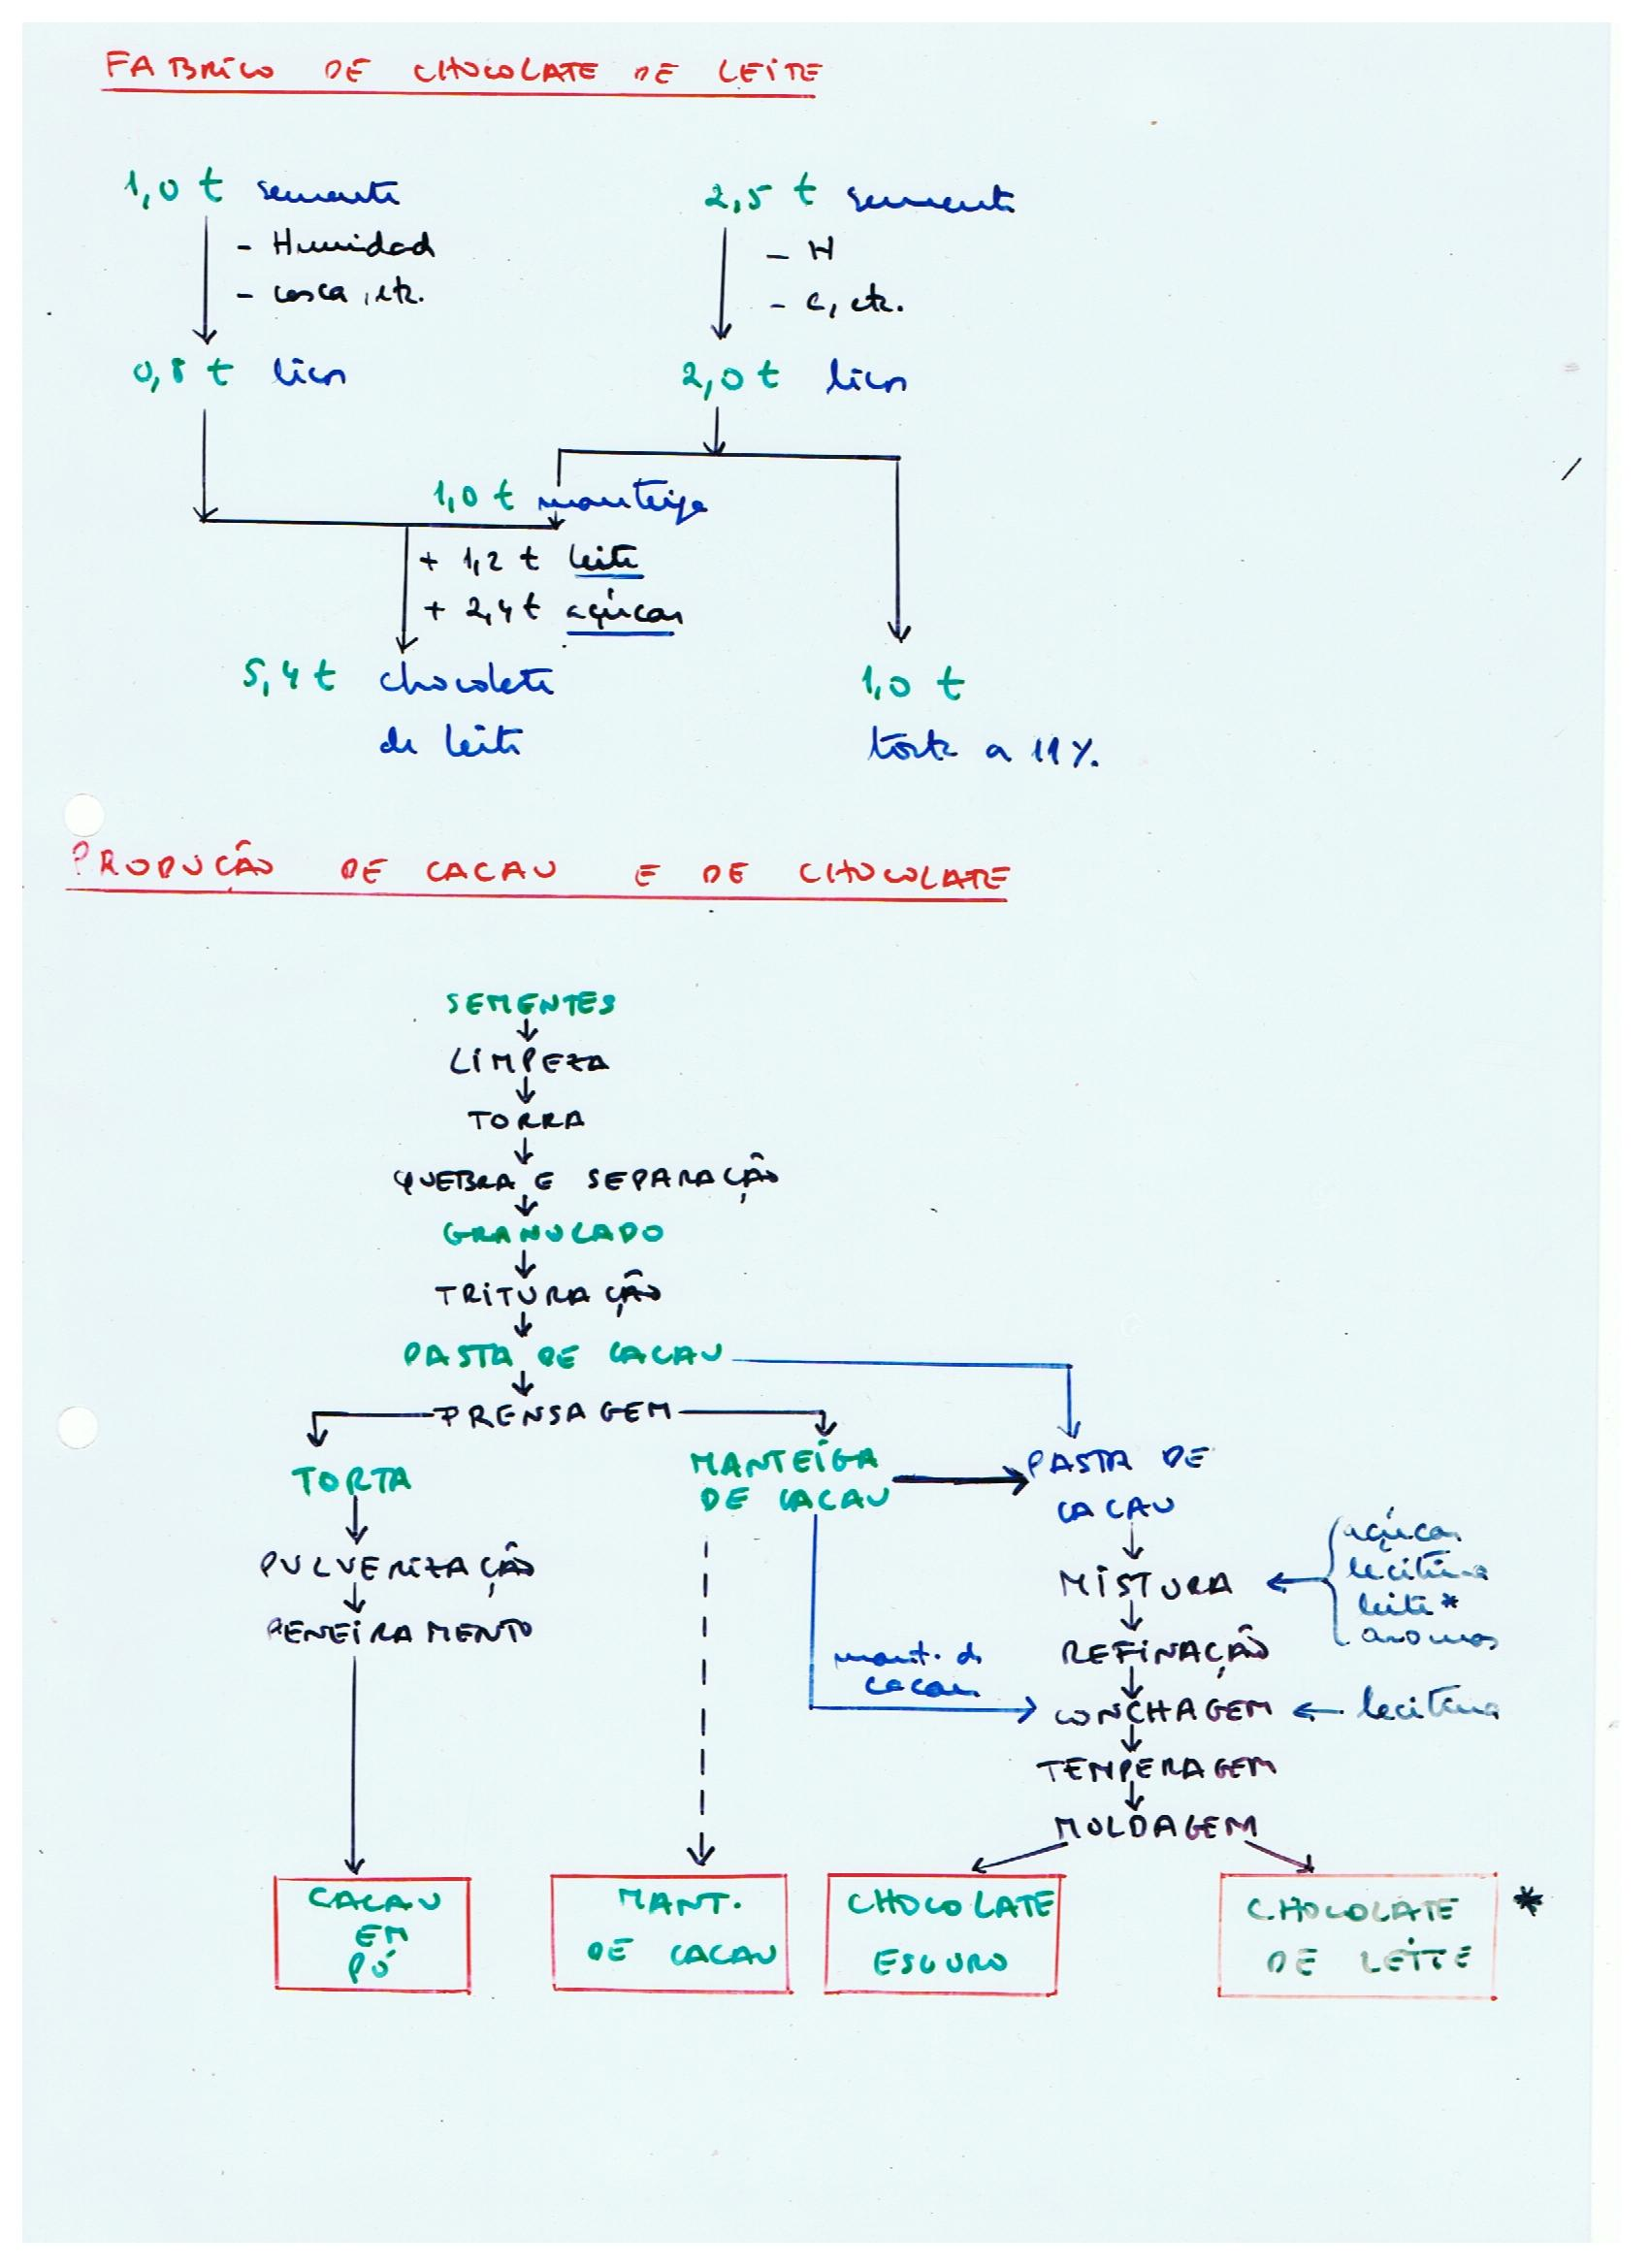 FABRICO DE CHOCOLATE DE LEITE
1,0 t semente
2,5 t semente
- Humidad
- H
- casca, etc.
- c, etc.
0,8 t licor
2,0 t licor
1,0 t manteiga
+ 1,2 t leite
+ 2,4 t açúcar
5,4 t chocolate
de leite
1,0 t
torta a 11%.
PRODUÇÃO DE CACAU E DE CHOCOLATE
SEMENTES
LIMPEZA
TORRA
QUEBRA E SEPARAÇÃO
GRANULADO
TRITURAÇÃO
PASTA DE CACAU
PRENSAGEM
TORTA
MANTEIGA
DE CACAU
PASTA DE
CACAU
PULVERIZAÇÃO
PENEIRAMENTO
MISTURA
açúcar
lecitina
leite *
aromas
REFINAÇÃO
mant. de
cacau
CONCHAGEM
lecitina
TEMPERAGEM
MOLDAGEM
CACAU
EM
PÓ
MANT.
DE CACAU
CHOCOLATE
ESCURO
CHOCOLATE *
DE LEITE